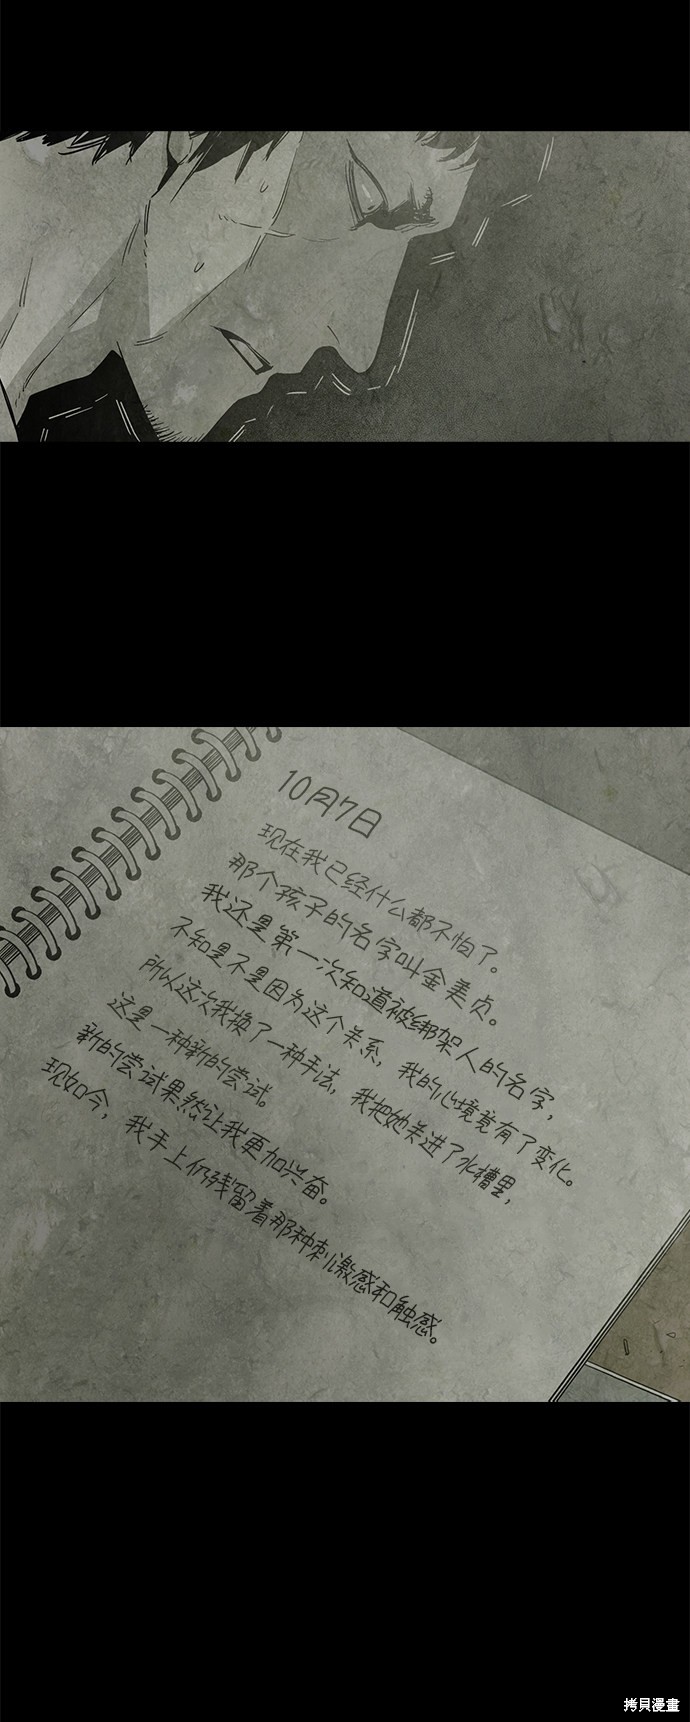 10月7日
现在我已经什么都不怕了。
那个孩子的名字叫金美贞。
我还是第一次知道被绑架人的名字，
不知是不是因为这个关系，我的心境竟有了变化。
所以这次我换了一种手法，我把她关进了水槽里，
这是一种新的尝试。
新的尝试果然让我更加兴奋。
现如今，我手上仍残留着那种刺激感和触感。
拷貝漫畫